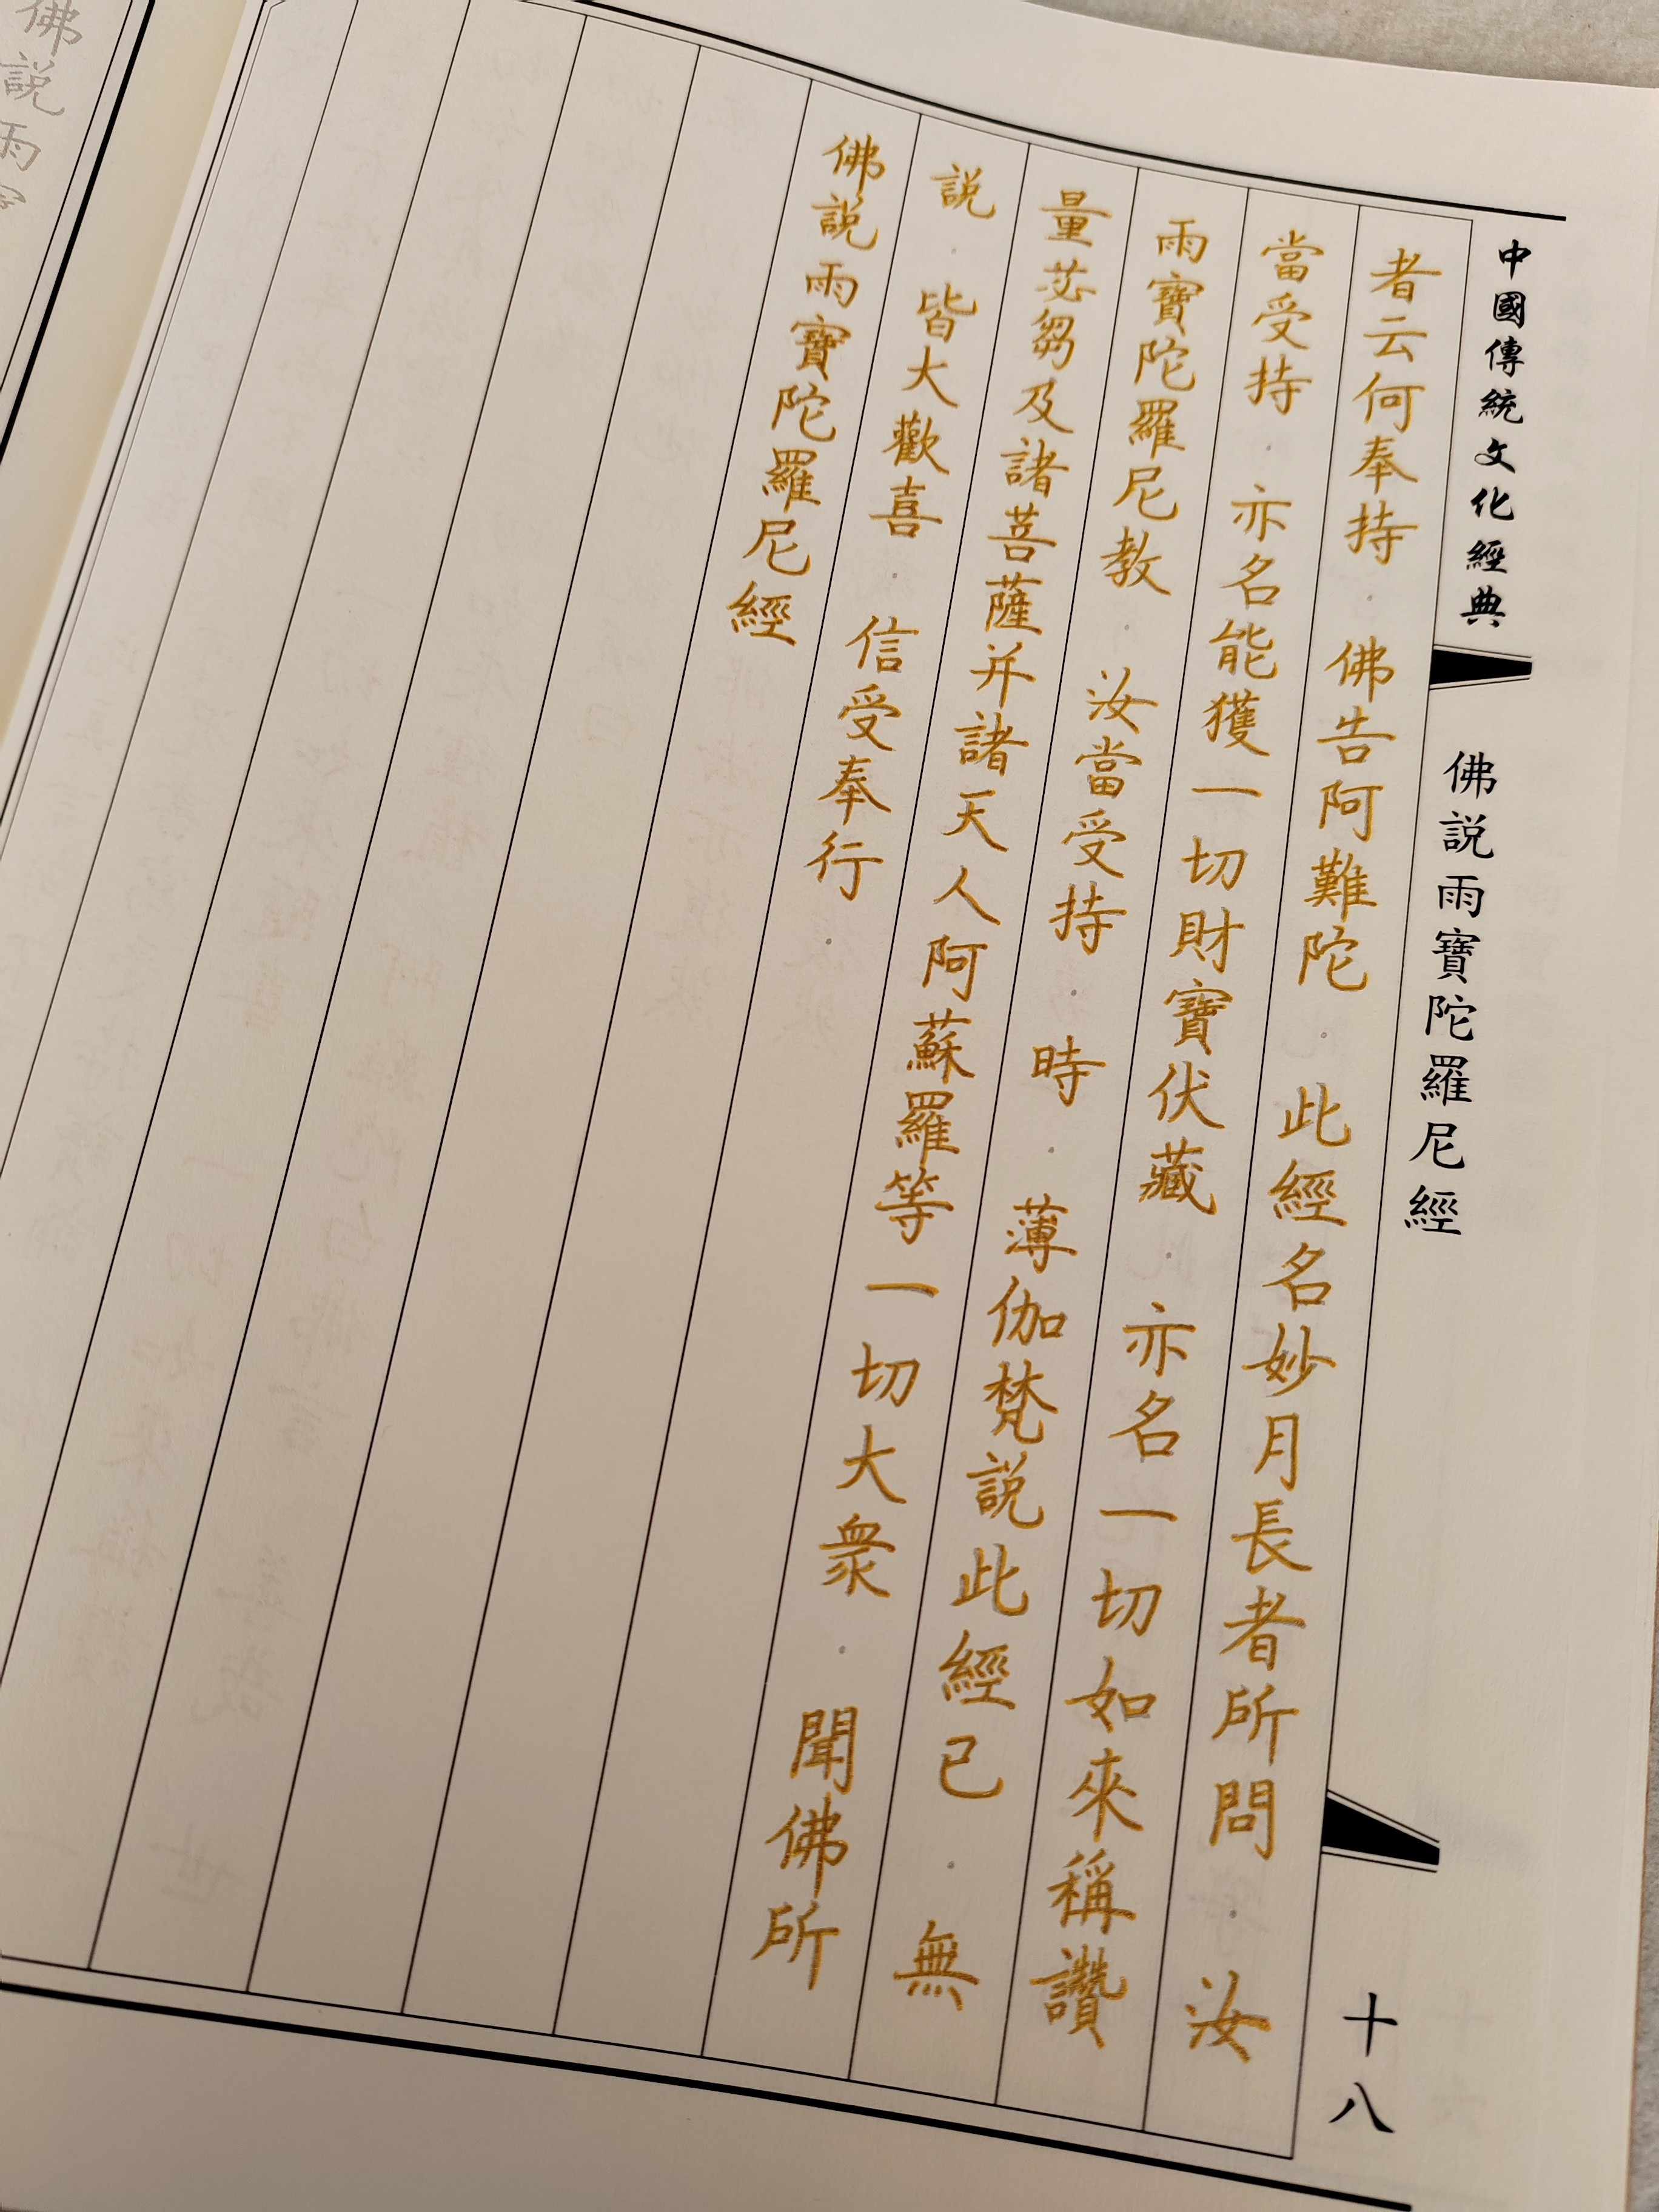 中國傳統文化經典
佛説雨寶陀羅尼經
十八
者云何奉持．佛告阿難陀．此經名妙月長者所問．汝
當受持．亦名能獲一切財寶伏藏．亦名一切如來稱讚
雨寶陀羅尼教．汝當受持．時．薄伽梵説此經已．無
量苾芻及諸菩薩并諸天人阿蘇羅等一切大衆．聞佛所
説．皆大歡喜．信受奉行．
佛説雨寶陀羅尼經
佛説雨